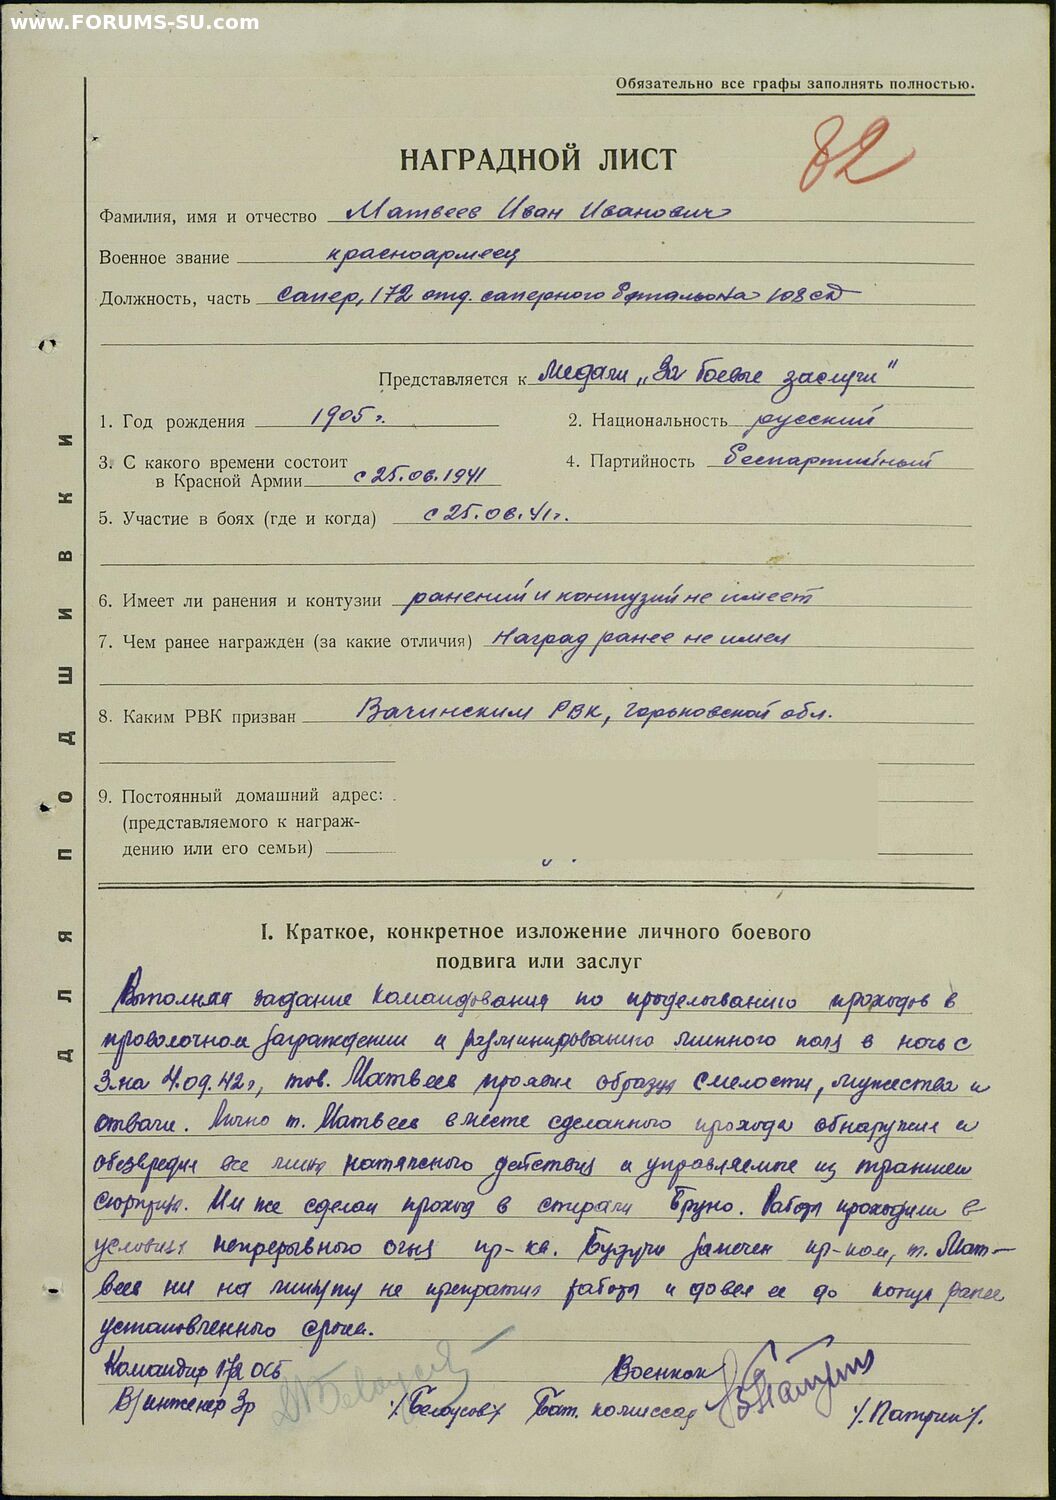 www.FORUMS-SU.com
Обязательно все графы заполнять полностью.
82
НАГРАДНОЙ ЛИСТ
Фамилия, имя и отчество Матвеев Иван Иванович
Военное звание красноармеец
Должность, часть сапер, 172 отд. саперного батальона 108 сд
Представляется к медали „За боевые заслуги"
1. Год рождения 1905 г.
2. Национальность русский
3. С какого времени состоит
в Красной Армии с 25.06.1941
4. Партийность беспартийный
5. Участие в боях (где и когда) с 25.06.41 г.
6. Имеет ли ранения и контузии ранений и контузий не имеет
7. Чем ранее награжден (за какие отличия) наград ранее не имел
8. Каким РВК призван Вачинским РВК, Горьковской обл.
9. Постоянный домашний адрес:
(представляемого к награж-
дению или его семьи)
ДЛЯ ПОДШИВКИ
I. Краткое, конкретное изложение личного боевого
подвига или заслуг
Выполняя задание командования по проделыванию проходов в
проволочном заграждении и разминированию минного поля в ночь с
3 на 4.09.42 г, тов. Матвеев проявил образцы смелости, мужества и
отваги. Лично т. Матвеев в месте сделанного прохода обнаружил и
обезвредил все мины натяжного действия и управляемые из траншеи
сюрпризы. Им же сделан проход в спирали Бруно. Работы проходили в
условиях непрерывного огня пр-ка. Будучи замечен пр-ком, т. Мат-
веев ни на минуту не прекратил работы и довел ее до конца ранее
установленного срока.
Командир 172 ОСБ
В/инженер 3р /Белоусов/
Военком
Бат. комиссар /Патрин/.